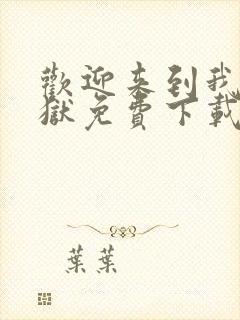 歡迎来到我
獄免費下載
葉葉